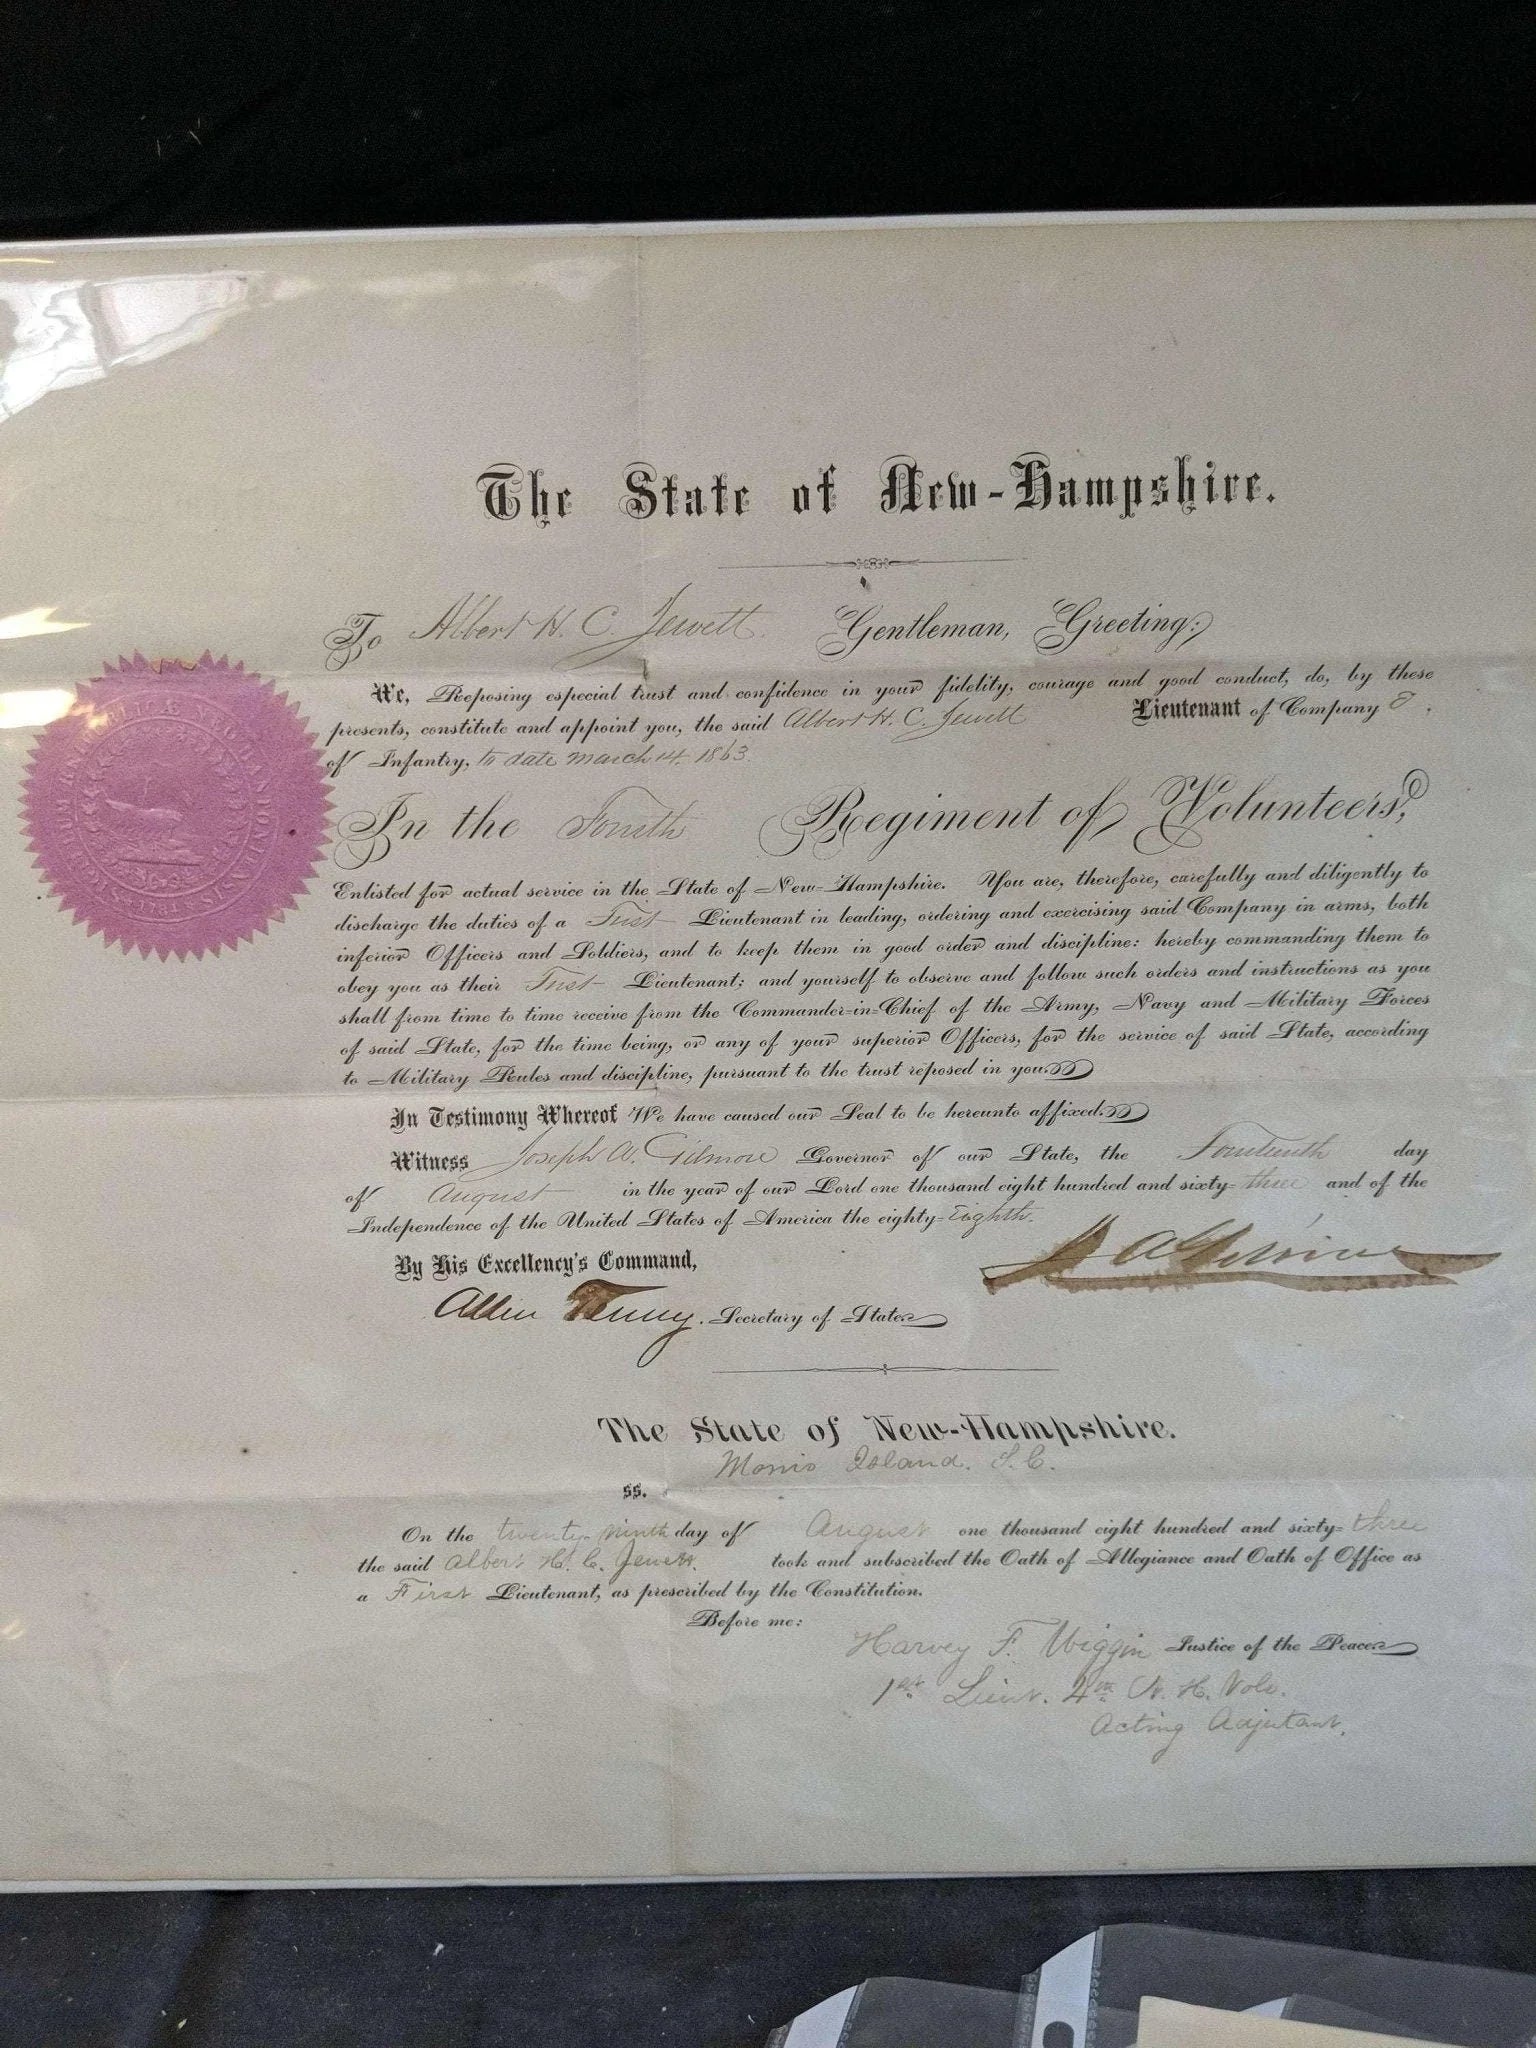 The State of New-Hampshire.
To Albert H. C. Jewett. Gentleman, Greeting:
We, Reposing especial trust and confidence in your fidelity, courage and good conduct, do, by these
presents, constitute and appoint you, the said Albert H. C. Jewett Lieutenant of Company
of Infantry, to date march 14, 1863
In the Fourth Regiment of Volunteers,
Enlisted for actual service in the State of New-Hampshire. You are, therefore, carefully and diligently to
discharge the duties of a First Lieutenant in leading, ordering and exercising said Company in arms, both
inferior Officers and Soldiers, and to keep them in good order and discipline: hereby commanding them to
obey you as their First Lieutenant; and yourself to observe and follow such orders and instructions as you
shall from time to time receive from the Commander-in-Chief of the Army, Navy and Military Forces
of said State, for the time being, or any of your superior Officers, for the service of said State, according
to Military Rules and discipline, pursuant to the trust reposed in you.
In Testimony Whereof We have caused our Seal to be hereunto affixed.
Witness Joseph A. Gilmore Governor of our State, the Fourteenth day
of August in the year of our Lord one thousand eight hundred and sixty-three and of the
Independence of the United States of America the eighty-Eighth.
J A Gilmore
By His Excellency's Command,
Allen Tenny. Secretary of State.
The State of New-Hampshire.
Morris Island. S. C.
ss.
On the twenty-ninth day of August one thousand eight hundred and sixty-three
the said Albert H. C. Jewett. took and subscribed the Oath of Allegiance and Oath of Office as
a First Lieutenant, as prescribed by the Constitution.
Before me:
Harvey F. Wiggin Justice of the Peace.
1st Lieut. 4th N. H. Vols.
Acting Adjutant.